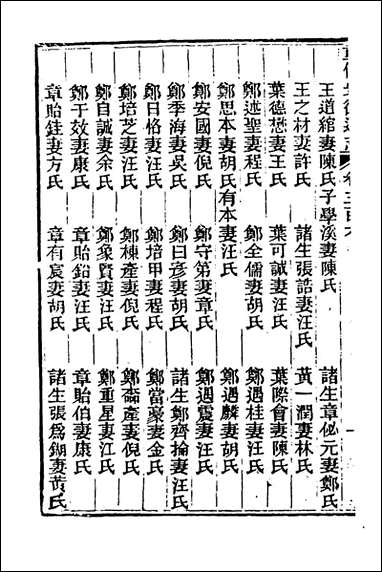 王道綰妻陳氏子學溪妻陳氏 諸生章佖元妻鄭氏
王之材妻許氏 諸生張誥妻汪氏 黃一潤妻林氏
葉德懋妻王氏 葉可誠妻汪氏 葉際會妻陳氏
鄭述聖妻程氏 鄭全儒妻胡氏 鄭遇桂妻汪氏
鄭思本妻胡氏有本妻汪氏 鄭遇麟妻胡氏
鄭安國妻倪氏 鄭守第妻章氏 鄭遇震妻汪氏
鄭季海妻吳氏 鄭曰彥妻胡氏 諸生鄭齊掄妻汪氏
鄭日恪妻汪氏 鄭培甲妻程氏 鄭當豪妻金氏
鄭培芝妻汪氏 鄭棟產妻倪氏 鄭喬產妻倪氏
鄭自誠妻余氏 鄭象賢妻汪氏 鄭重星妻江氏
鄭于效妻康氏 章貽鉛妻汪氏 章貽伯妻康氏
章貽銈妻方氏 章有宸妻胡氏 諸生張為鍸妻黃氏